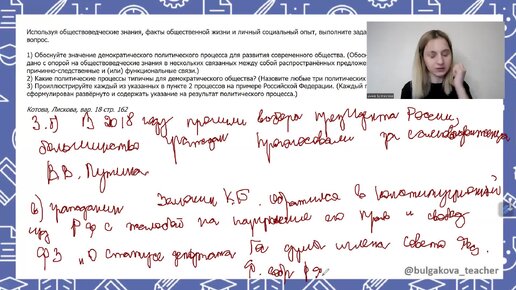 Используя обществоведческие знания, факты общественной жизни и личный социальный опыт, выполните зада
вопрос.
1) Обоснуйте значение демократического политического процесса для развития современного общества. (Обосн
дано с опорой на обществоведческие знания в нескольких связанных между собой распространённых предложе
причинно-следственные и (или) функциональные связи.)
2) Какие политические процессы типичны для демократического общества? (Назовите любые три политических
3) Проиллюстрируйте каждый из указанных в пункте 2 процессов на примере Российской Федерации. (Каждый
сформулирован развёрнуто и содержать указание на результат политического процесса.)
Котова, Лискова, вар. 18 стр. 162
3. б) В 2018 году прошли выборы президента России,
большинство граждан проголосовали за самовыдвиженца
В.В. Путина.
в) гражданин К.Б. обратился в Конституционный
суд РФ с жалобой на нарушение его прав и свобод
ФЗ "О статусе депутата Гос думы и члена Совета Фед.
Ф. собр РФ
@bulgakova_teacher